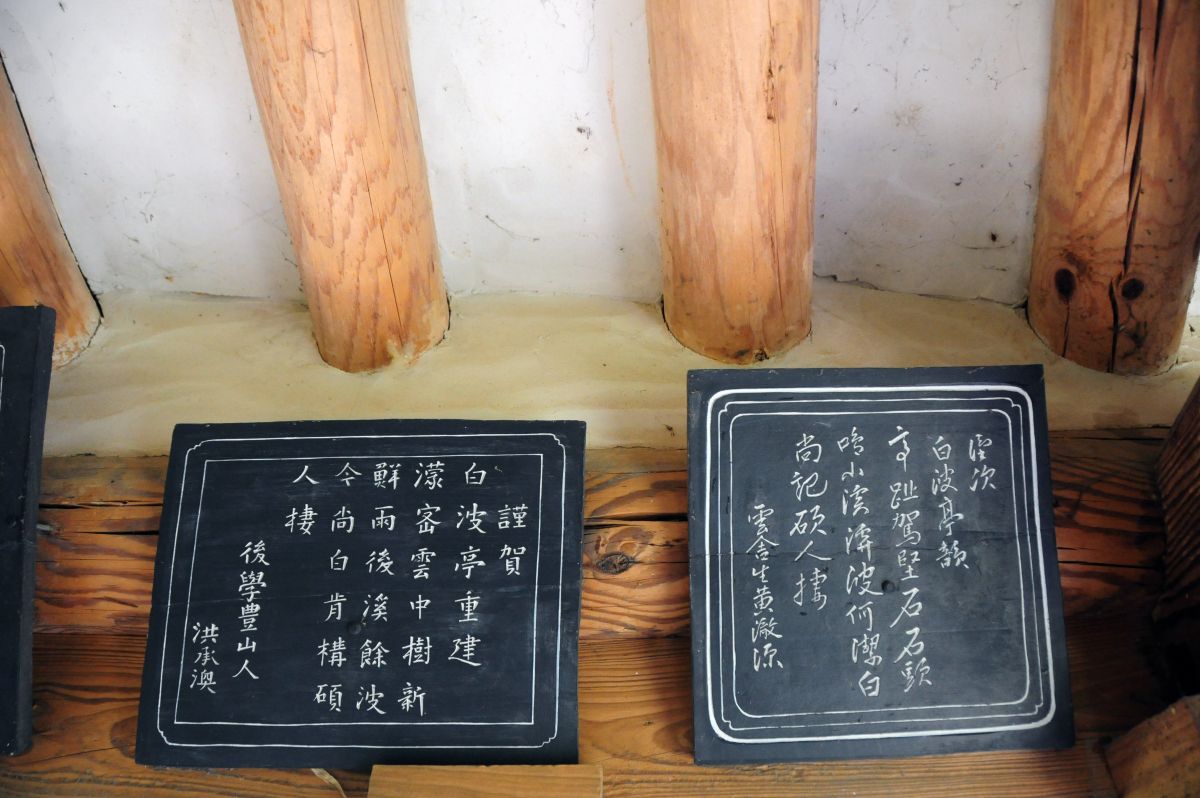 謹次
白波亭韻
亭趾駕堅石石頭
鳴小溪溪波何潔白
尚記碩人捿
雲舍生黃澈源
謹賀
白波亭重建
濛密雲中樹新
鮮雨後溪餘波
今尚白肯構碩
人棲
後學豊山人
洪承澳